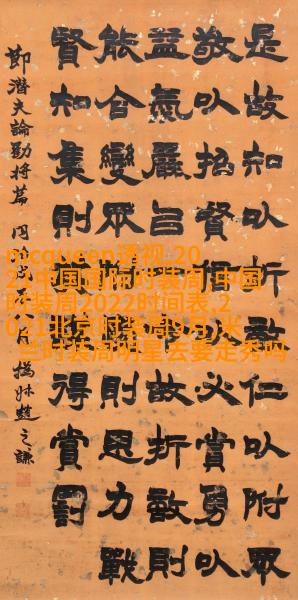 mcqueen透视,20
22中国国际时装周,中国
时装周2022时间表,2
021北京时装周9月,米
兰时装周明星去要走秀吗
是故知以折敵仁以附眾
敬以招賢以必賞勇以
益氣嚴㠯故折敵則
能合變眾則思力戰
賢知集則得賞罰
節潛夫論勸將篇 同八月 撝叔趙之謙